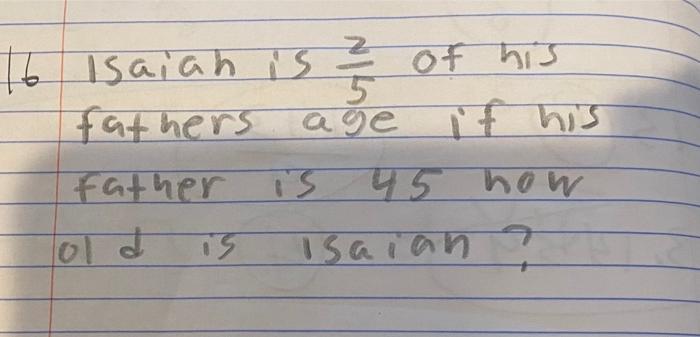 16 Isaiah is 2/5 of his
fathers age if his
father is 45 how
old is Isaiah?